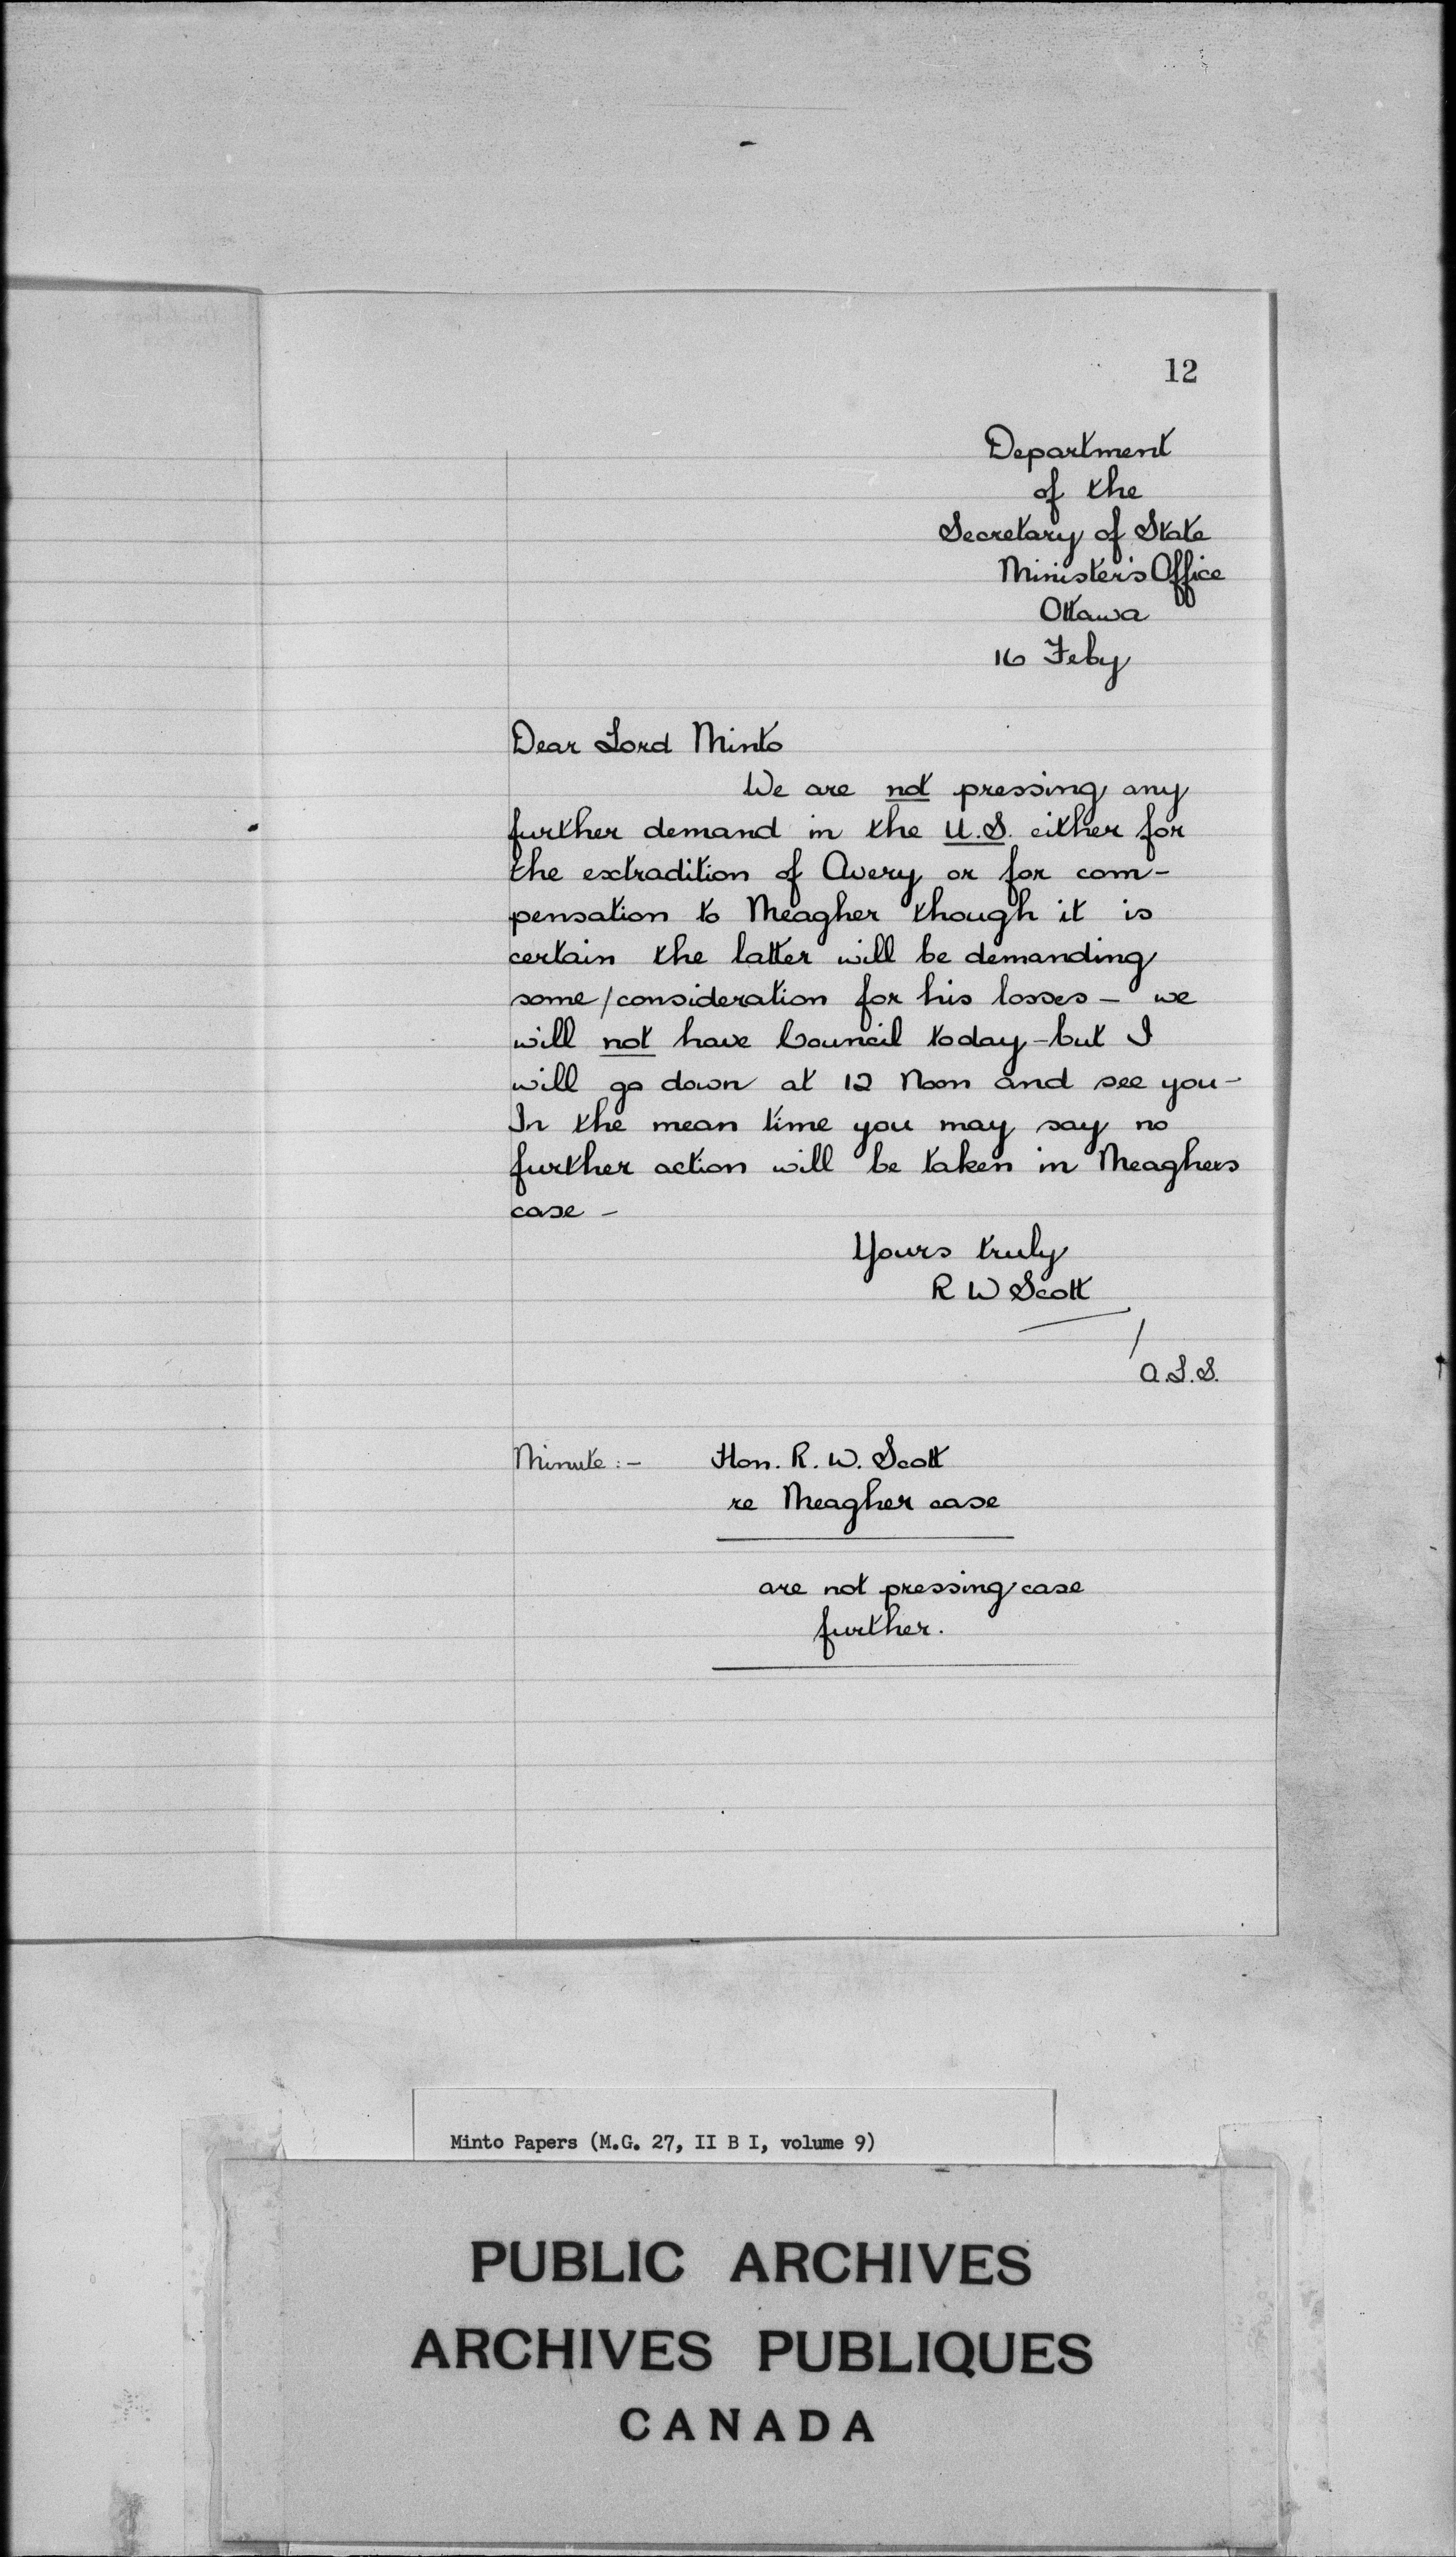 12
Department
of the
Secretary of State
Minister's Office
Ottawa
16 Feby
Dear Lord Minto
We are not pressing any
further demand in the U.S. either for
the extradition of Avery or for com-
pensation to Meagher though it is
certain the latter will be demanding
some/consideration for his losses – we
will not have Council today – but I
will go down at 12 Noon and see you –
In the mean time you may say no
further action will be taken in Meaghers
case –
Yours truly
R W Scott
A.L.S.
Minute :– Hon. R. W. Scott
re Meagher case
are not pressing case
further.
Minto Papers (M.G. 27, II B I, volume 9)
PUBLIC ARCHIVES
ARCHIVES PUBLIQUES
CANADA